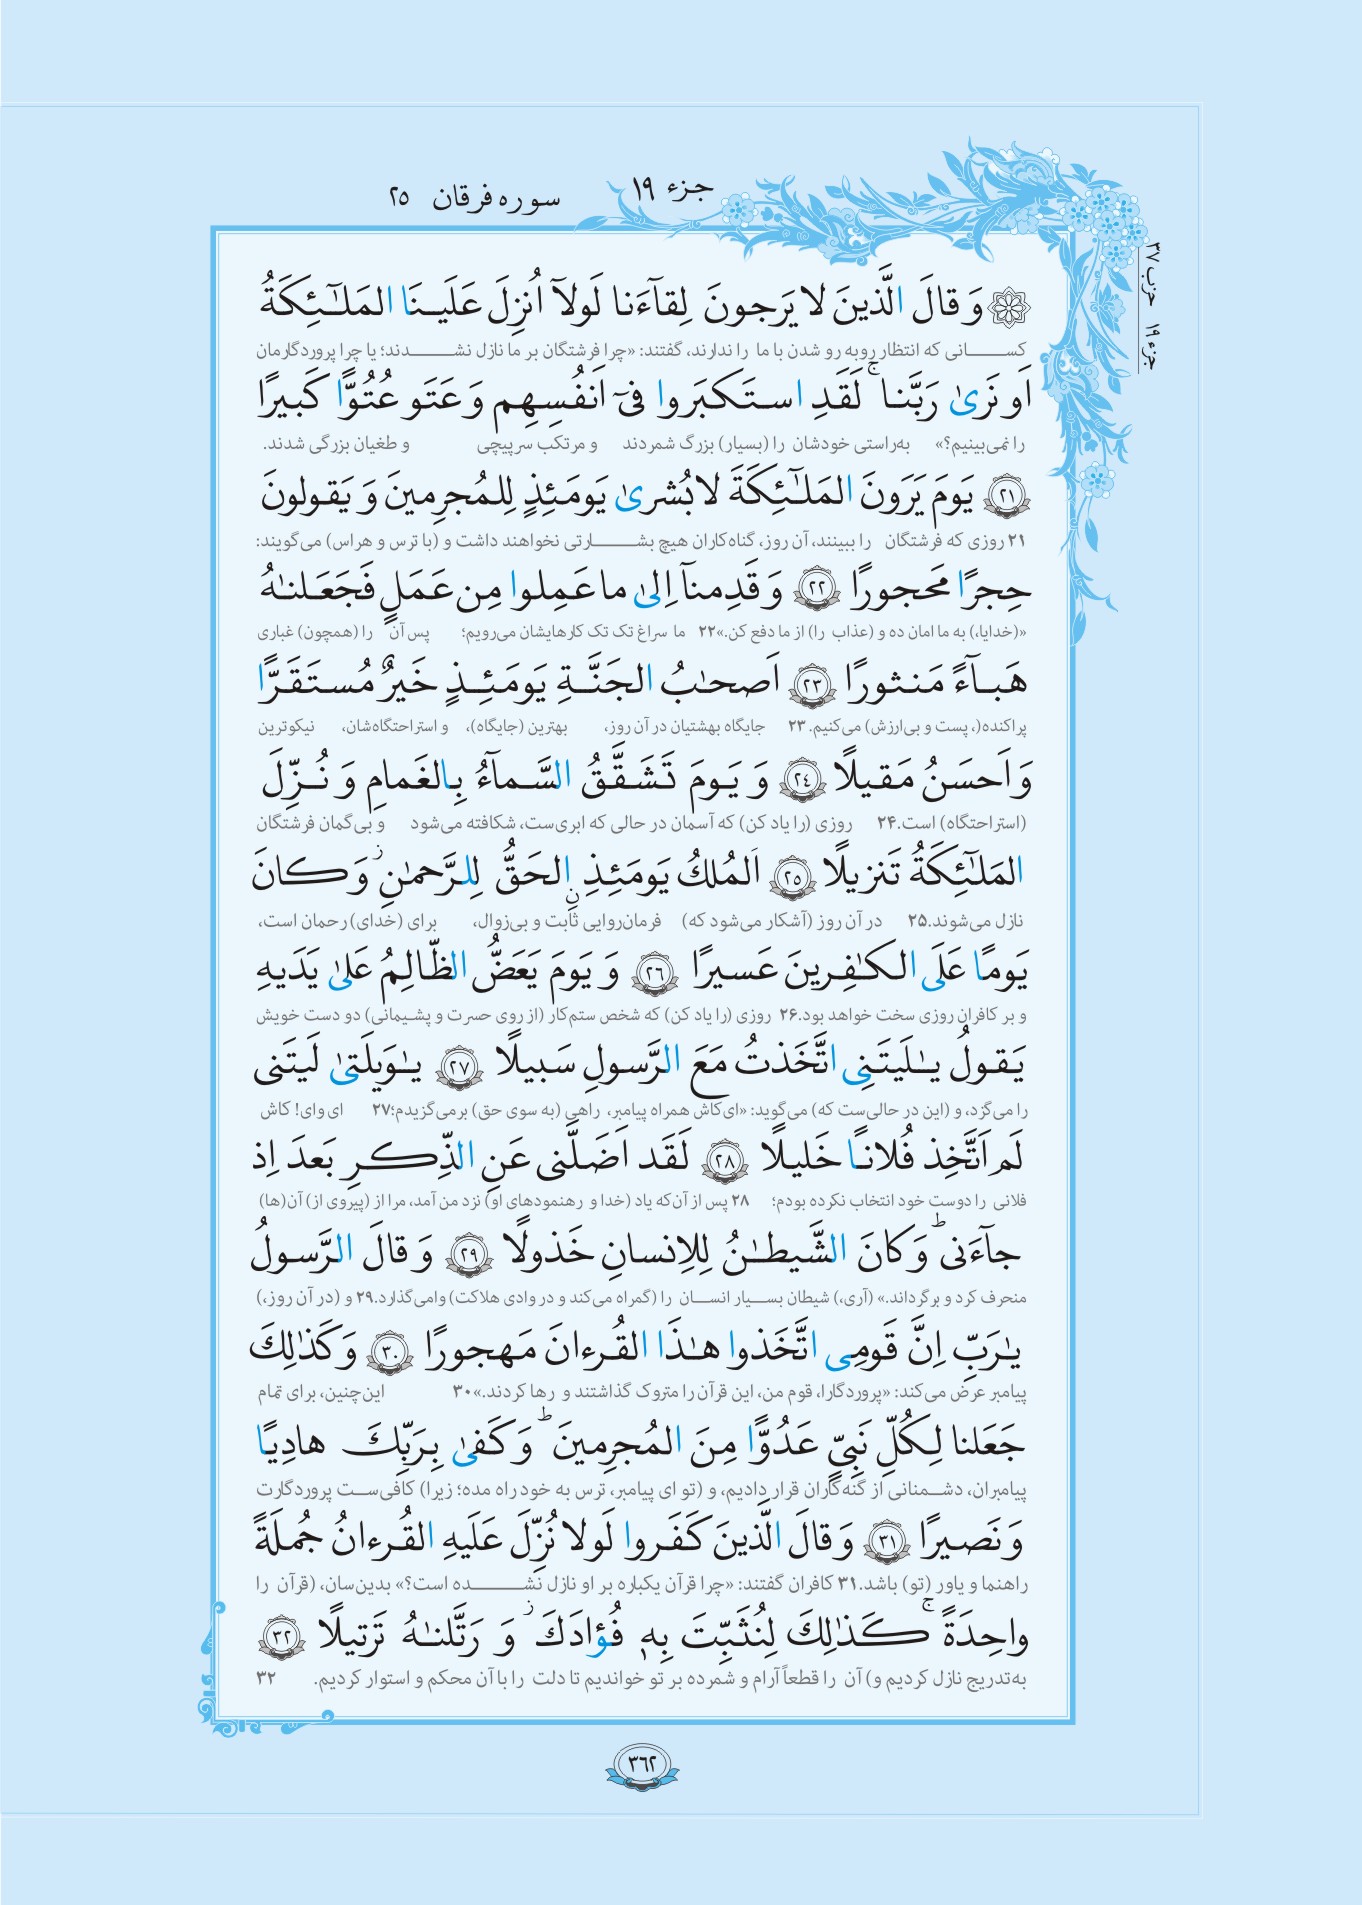 جزء ۱۹
سوره فرقان ۲۵
جزء ۱۹ حزب ۳۷
وَ قالَ الَّذينَ لا يَرجونَ لِقاۤءَنا لَولاۤ اُنزِلَ عَلَيـنَا المَلـٰۤئِكَةُ
کسـانی که انتظار روبه رو شدن با ما را ندارند، گفتند: «چرا فرشتگان بر ما نازل نشـدند؛ یا چرا پروردگارمان
اَو نَرىٰ رَبَّنا ۚ لَقَدِ استَكبَروا فىۤ اَنفُسِهِم وَ عَتَو عُتُوًّا كَبيرًا
را نمی‌بینیم؟» به‌راستی خودشان را (بسیار) بزرگ شمردند و مرتکب سرپیچی و طغیان بزرگی شدند.
۲۱ يَومَ يَرَونَ المَلـٰۤئِكَةَ لا بُشرىٰ يَومَئِذٍ لِلمُجرِمينَ وَ يَقولونَ
۲۱ روزی که فرشتگان را ببینند، آن روز، گناه‌کاران هیچ بشـارتی نخواهند داشت و (با ترس و هراس) می‌گویند:
حِجرًا مَحجورًا ۲۲ وَ قَدِمناۤ اِلىٰ ما عَمِلوا مِن عَمَلٍ فَجَعَلنـٰهُ
«(خدایا،) به ما امان ده و (عذاب را) از ما دفع کن.»۲۲ ما سراغ تک تک کارهایشان می‌رویم؛ پس آن را (همچون) غباری
هَبـاۤءً مَنثورًا ۲۳ اَصحـٰبُ الجَنَّـةِ يَومَئِـذٍ خَيرٌ مُستَقَرًّا
پراکنده(، پست و بی‌ارزش) می‌کنیم. ۲۳ جایگاه بهشتیان در آن روز، بهترین (جایگاه)، و استراحتگاه‌شان، نیکوترین
وَ اَحسَنُ مَقيلًا ۲٤ وَ يَـومَ تَشَقَّقُ السَّـماۤءُ بِالغَمامِ وَ نُـزِّلَ
(استراحتگاه) است.۲۴ روزی (را یاد کن) که آسمان در حالی که ابری‌ست، شکافته می‌شود و بی‌گمان فرشتگان
المَلـٰۤئِكَةُ تَنزيلًا ۲۵ اَلمُلكُ يَومَئِذٍ ۨالحَقُّ لِلرَّحمـٰنِ ۚ وَ كانَ
نازل می‌شوند.۲۵ در آن روز (آشکار می‌شود که) فرمان‌روایی ثابت و بی‌زوال، برای (خدای) رحمان است،
يَومًا عَلَى الكـٰفِرينَ عَسيرًا ۲٦ وَ يَومَ يَعَضُّ الظّالِمُ عَلىٰ يَدَيهِ
و بر کافران روزی سخت خواهد بود.۲۶ روزی (را یاد کن) که شخص ستم‌کار (از روی حسرت و پشیمانی) دو دست خویش
يَقولُ يـٰلَيتَنِى اتَّخَذتُ مَعَ الرَّسولِ سَبيلًا ۲۷ يـٰوَيلَتىٰ لَيتَنى
را می‌گزد، و (این در حالی‌ست که) می‌گوید: «ای‌کاش همراه پیامبر، راهی (به سوی حق) برمی‌گزیدم؛۲۷ ای وای! کاش
لَم اَتَّخِذ فُلانًا خَليلًا ۲۸ لَقَد اَضَلَّنى عَنِ الذِّكـرِ بَعدَ اِذ
فلانی را دوست خود انتخاب نکرده بودم؛ ۲۸ پس از آن‌که یاد (خدا و رهنمودهای او) نزد من آمد، مرا از (پیروی از) آن(ها)
جاۤءَنى ؕ وَ كانَ الشَّيطـٰنُ لِلاِنسانِ خَذولًا ۲۹ وَ قالَ الرَّسولُ
منحرف کرد و برگرداند.» (آری،) شیطان بسـیار انسـان را (گمراه می‌کند و در وادی هلاکت) وامی‌گذارد.۲۹ و (در آن روز،)
يـٰرَبِّ اِنَّ قَومِى اتَّخَذوا هـٰذَا القُرءانَ مَهجورًا ۳۰ وَ كَذٰلِكَ
پیامبر عرض می‌کند: «پروردگارا، قوم من، این قرآن را متروک گذاشتند و رها کردند.»۳۰ این‌چنین، برای تمام
جَعَلنا لِكُلِّ نَبِىٍّ عَدُوًّا مِنَ المُجرِمينَ ؕ وَ كَفىٰ بِرَبِّكَ هادِيًا
پیامبران، دشـمنانی از گنه‌کاران قرار دادیم، و (تو ای پیامبر، ترس به خود راه مده؛ زیرا) کافی‌سـت پروردگارت
وَ نَصيرًا ۳۱ وَ قالَ الَّذينَ كَفَروا لَولا نُزِّلَ عَلَيهِ القُرءانُ جُملَةً
راهنما و یاور (تو) باشد.۳۱ کافران گفتند: «چرا قرآن یکباره بر او نازل نشـده است؟» بدین‌سان، (قرآن را
واحِدَةً ۚ كَذٰلِكَ لِنُثَبِّتَ بِهٖ فُؤادَكَ ۚ وَ رَتَّلنـٰهُ تَرتيلًا ۳۲
به‌تدریج نازل کردیم و) آن را قطعاً آرام و شمرده بر تو خواندیم تا دلت را با آن محکم و استوار کردیم. ۳۲
۳٦۲